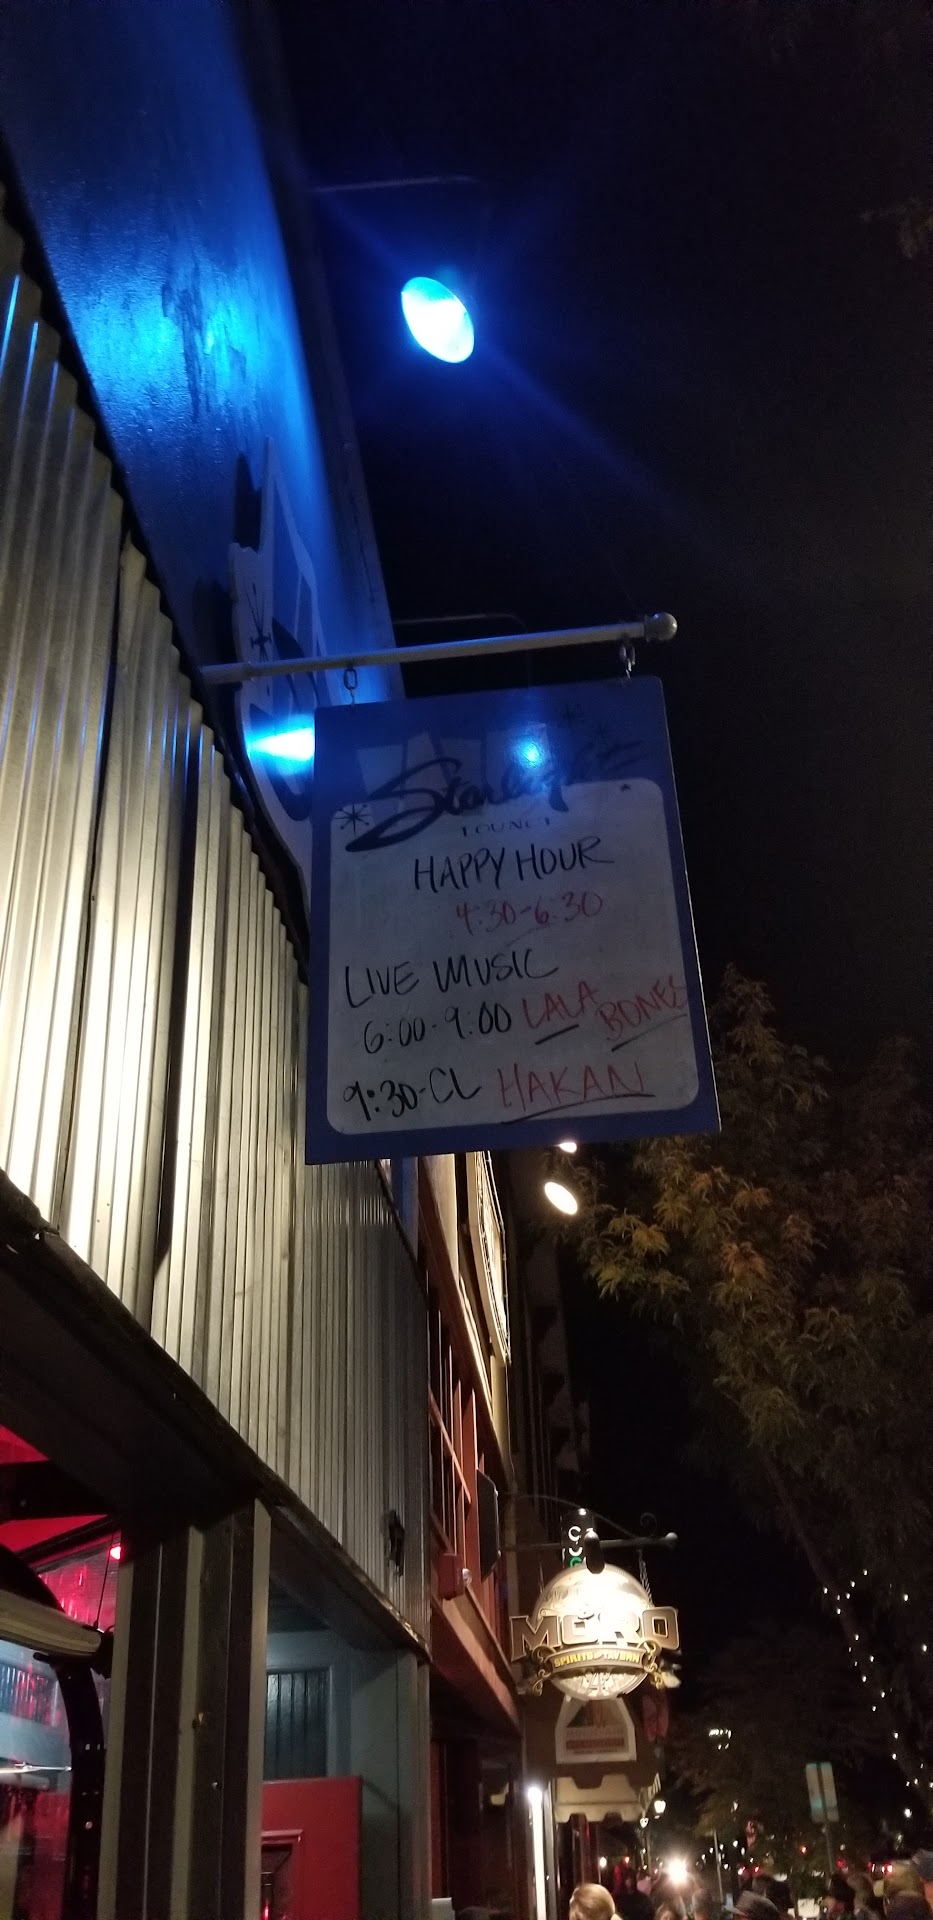 Starlight
LOUNGE
HAPPY HOUR
4:30-6:30
LIVE MUSIC
6:00-9:00 LALA BONES
9:30-CL HAKAN
MCRO
SPIRITS & TAVERN